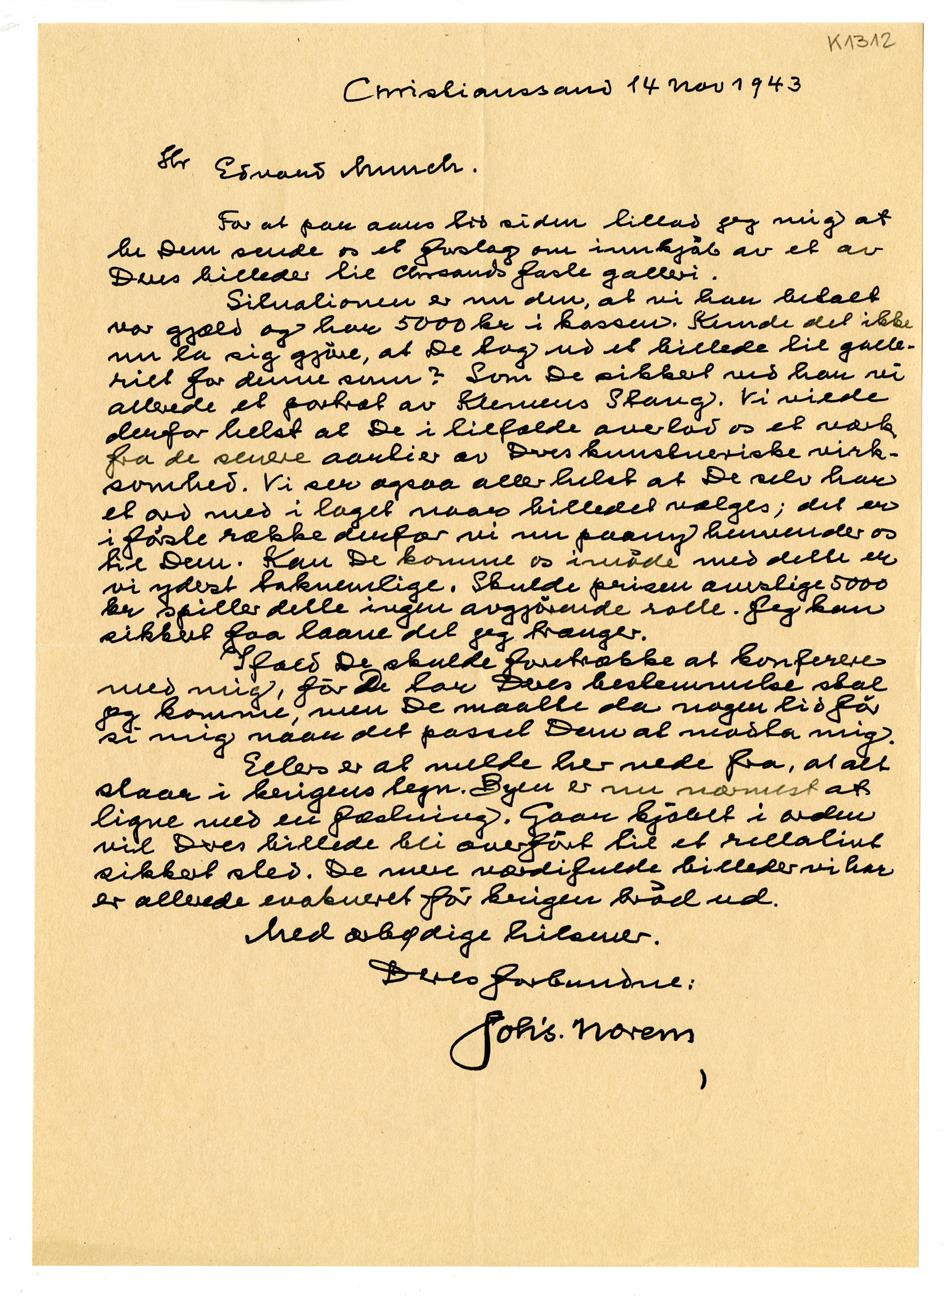 K1312
Christianssand 14 Nov 1943
Hr Edvard Munch.
For et par aars tid siden tillod jeg mig at
be Dem sende os et forslag om innkjøb av et av
Deres billeder til Chrsands faste galleri.
Situationen er nu den, at vi har betalt
vor gjæld og har 5000 kr i kassen. Kunde det ikke
nu la sig gjøre, at De tog ud et billede til galle-
riet for denne sum? Som De sikkert ved har vi
allerede et portræt av Klemens Stang. Vi vilde
derfor helst at De i tilfælde overlod os et værk
fra de senere aartier av Deres kunstneriske virk-
somhed. Vi ser ogsaa aller helst at De selv har
et ord med i laget naar billedet vælges; det er
i første række derfor vi nu paany henvender os
til Dem. Kan De komme os imøde med dette er
vi ydest taknemlige. Skulde prisen overstige 5000
kr spiller dette ingen avgjørende rolle. Jeg kan
sikkert faa laane det jeg trænger.
Ifald De skulde foretrække at konferere
med mig, før De tar Deres bestemmelse skal
jeg komme, men De maatte da nogen tid før
si mig naar det passet Dem at modta mig.
Ellers er at melde her nede fra, at alt
staar i krigens tegn. Byen er nu nærmest at
ligne med en fæstning. Gaar kjøbet i orden
vil Deres billede bli overført til et rellativt
sikkert sted. De mere værdifulde billeder vi har
er allerede evakueret før krigen brød ud.
Med ærbødige hilsener.
Deres forbundne:
Johs. Norem